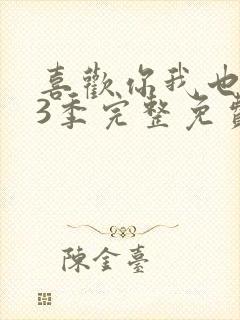 喜歡你我也
3季完整免費
陳金臺